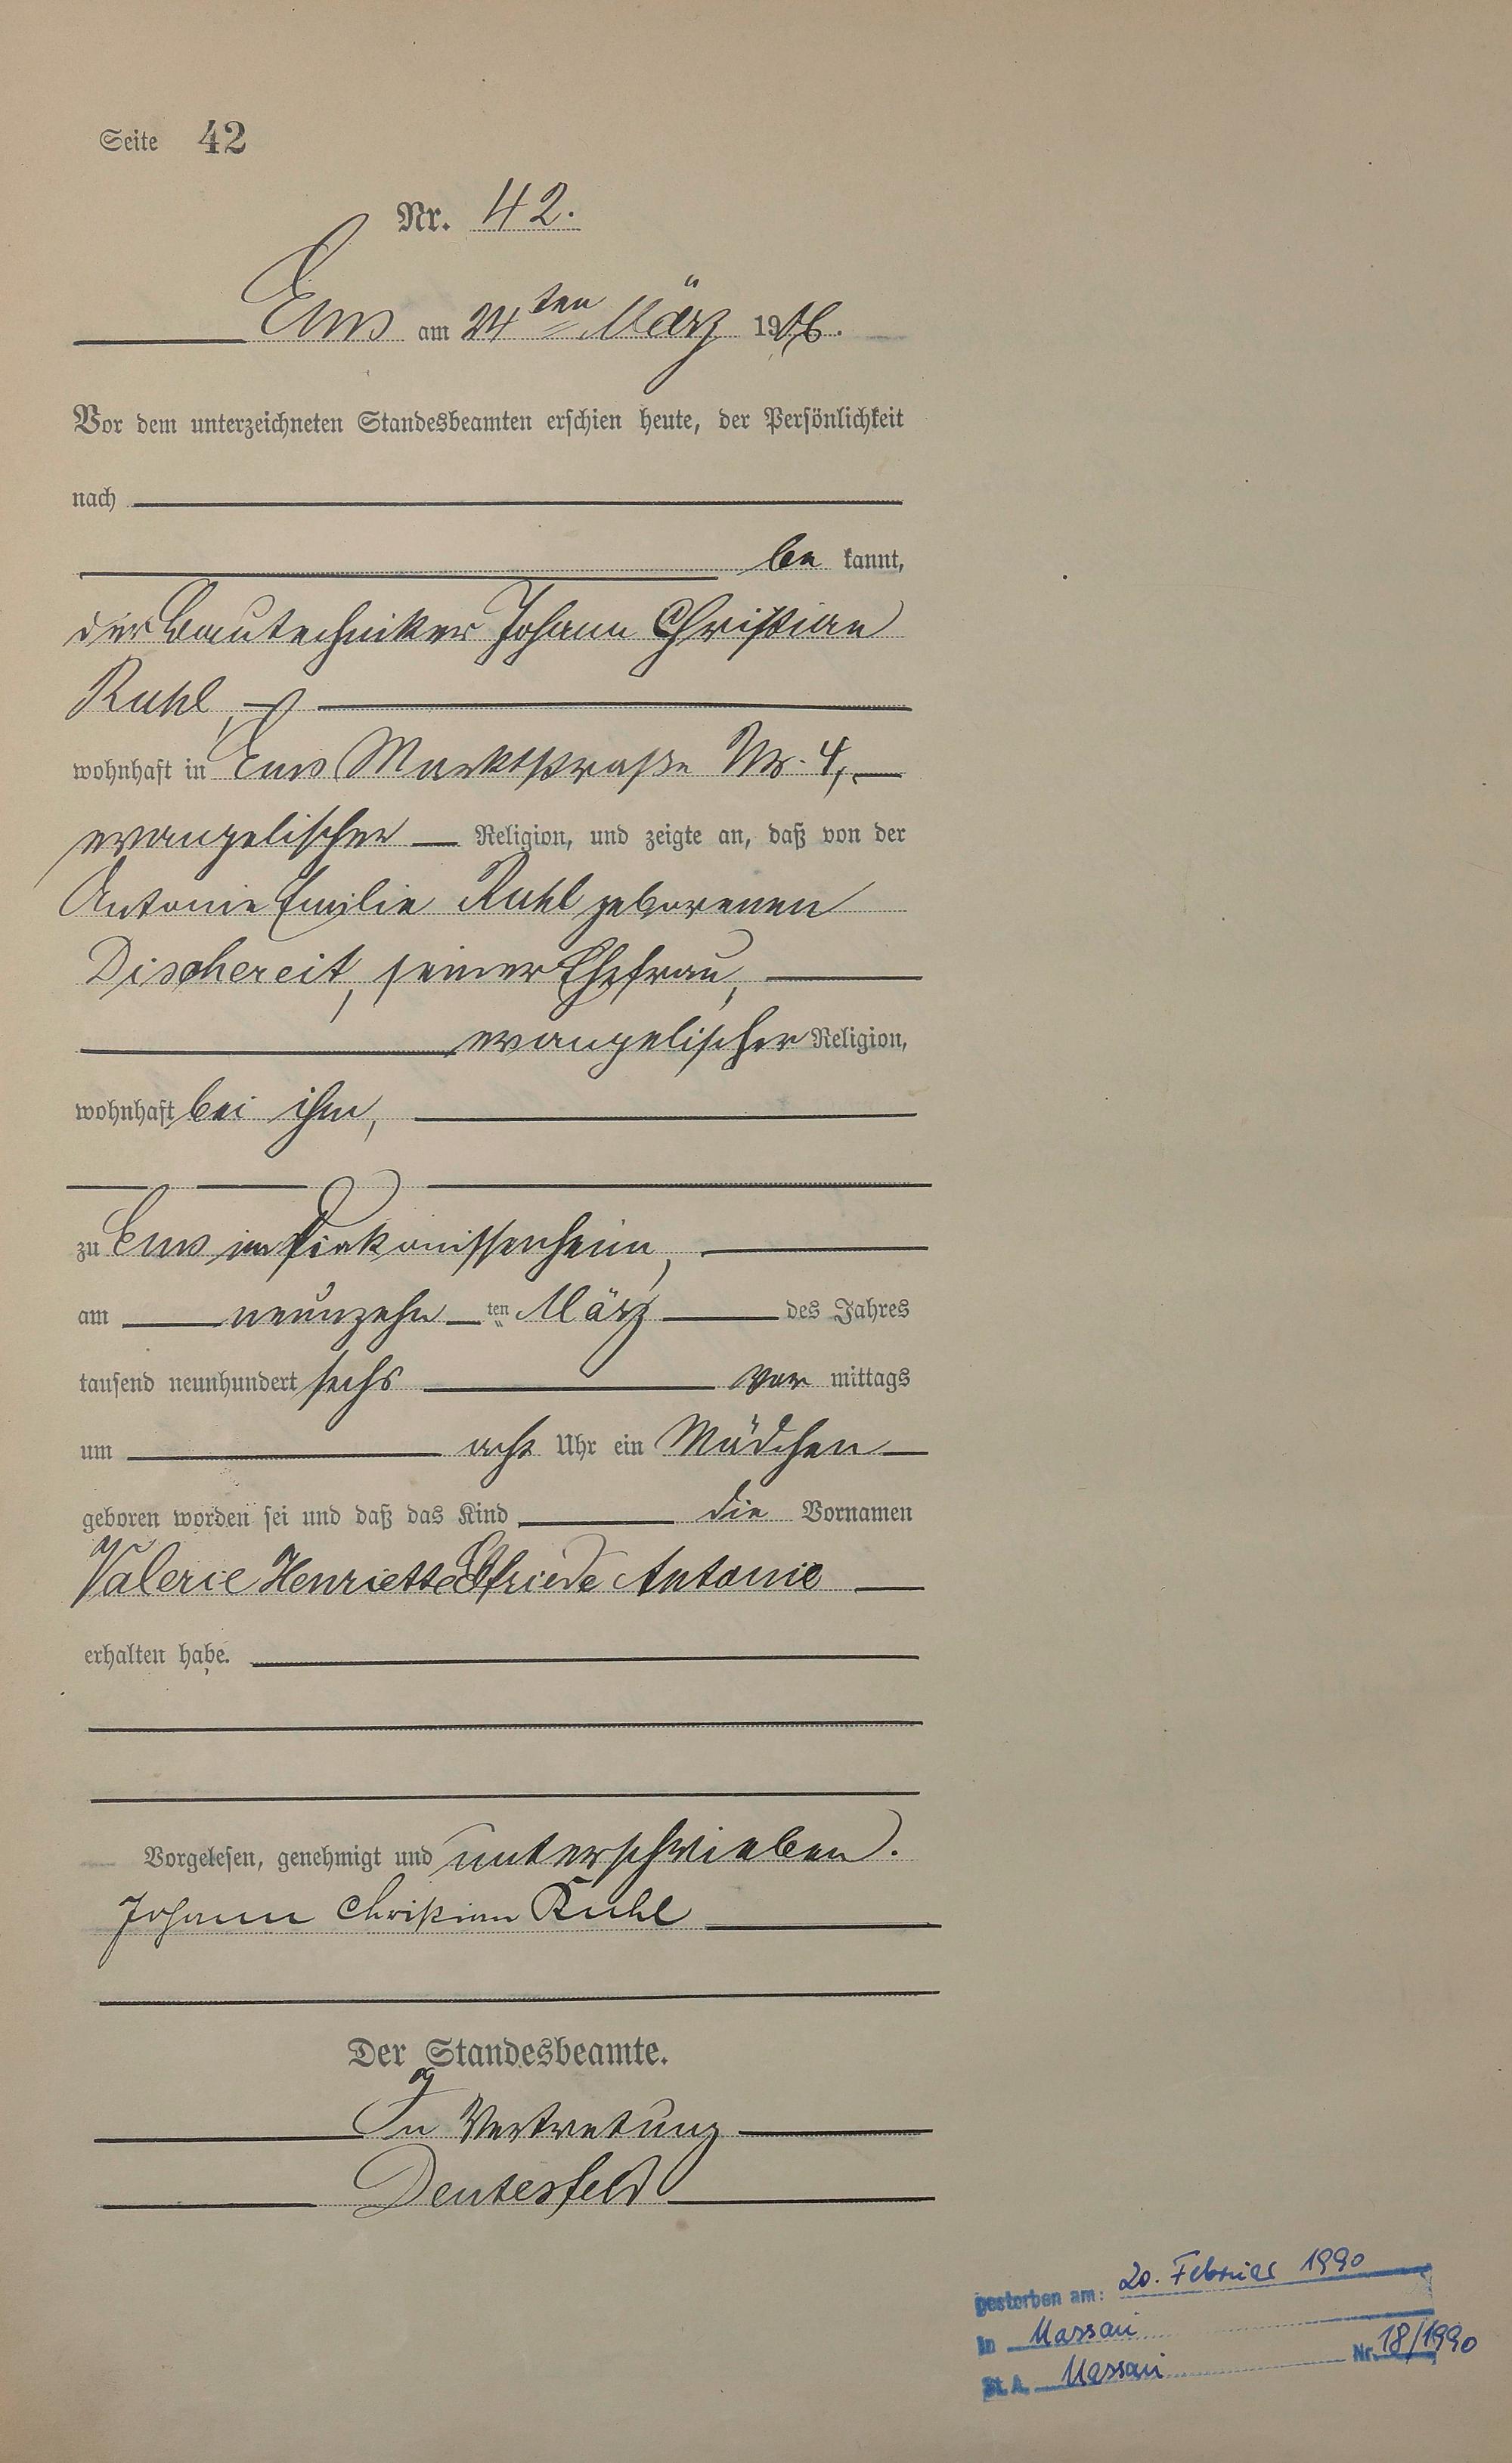 Seite 42
Nr. 42.
Ems am 24ten März 1906.
Vor dem unterzeichneten Standesbeamten erschien heute, der Persönlichkeit
nach
be kannt,
der Bautechniker Johann Christian
Ruhl,
wohnhaft in Ems Marktstraße Nr. 4,
evangelischer Religion, und zeigte an, daß von der
Antonie Emilie Ruhl geborenen
Dischereit, seiner Ehefrau,
evangelischer Religion,
wohnhaft bei ihm,
zu Ems im Diakonissenheim,
am neunzehn ten März des Jahres
tausend neunhundert sechs vor mittags
um acht Uhr ein Mädchen
geboren worden sei und daß das Kind die Vornamen
Valerie Henriette Elfriede Antonie
erhalten habe.
Vorgelesen, genehmigt und unterschrieben.
Johann Christian Ruhl
Der Standesbeamte.
In Vertretung
Deutesfeld
gestorben am: 20. Februar 1990
in Nassau
St. A. Nassau Nr. 18/1990